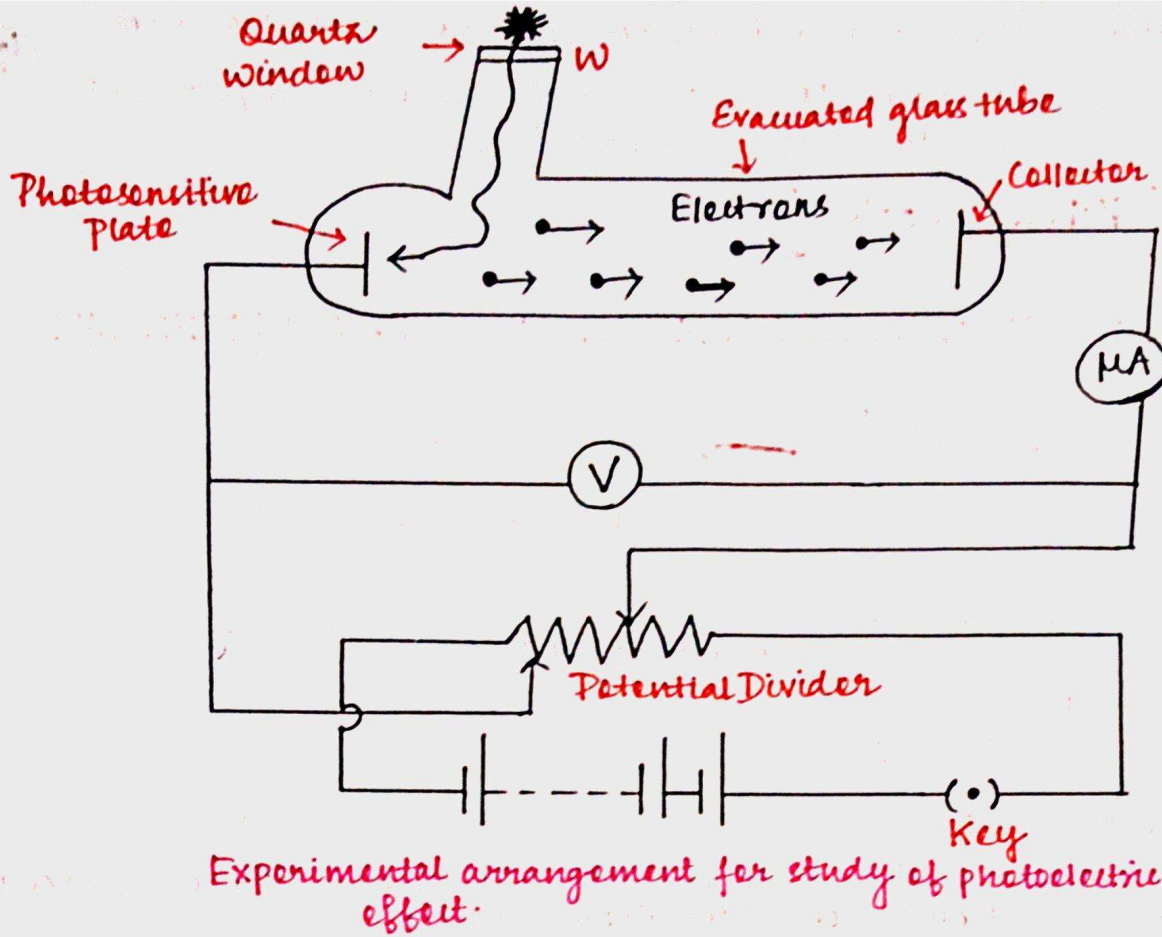 Quartz
window
W
Evacuated glass tube
Collector
Photosensitive
Plate
Electrons
μA
V
Potential Divider
Key
Experimental arrangement for study of photoelectric
effect.